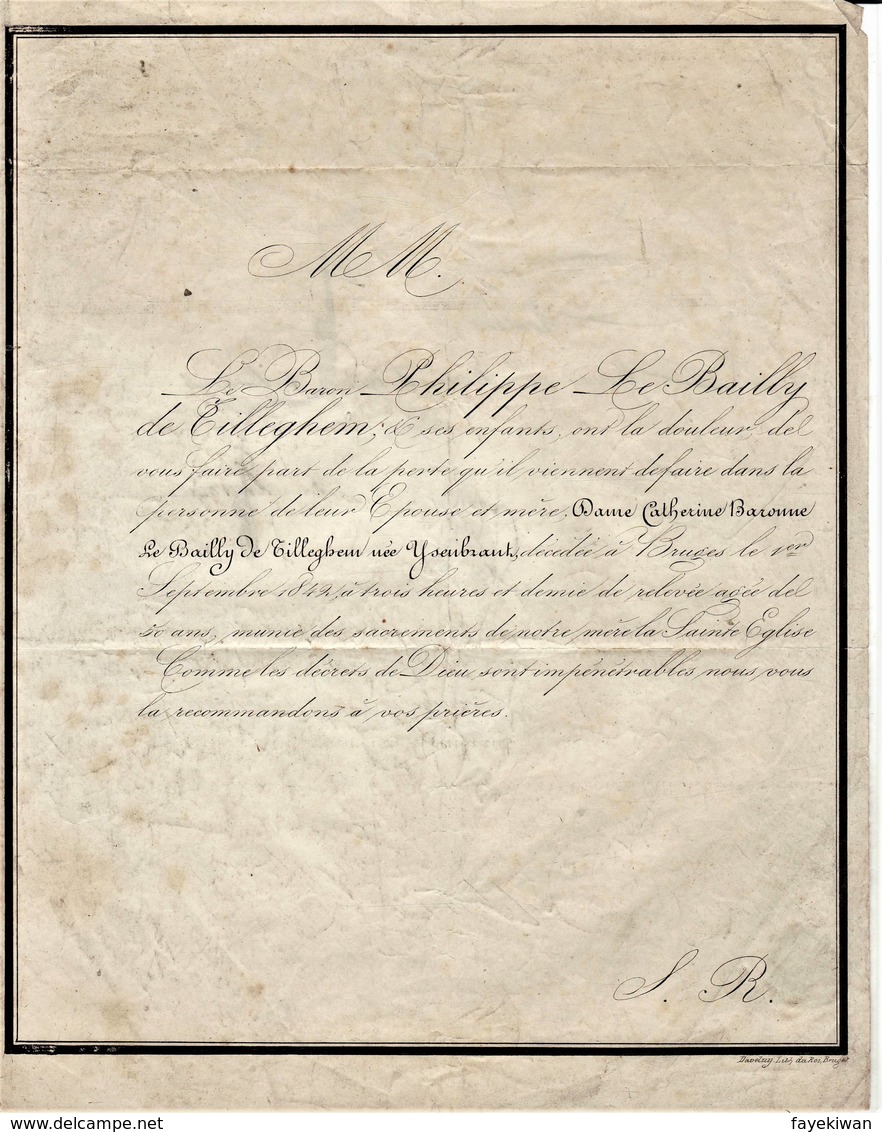 MM.
Le Baron Philippe Le Bailly
de Tilleghem, & ses enfants, ont la douleur de
vous faire part de la perte qu'il viennent de faire dans la
personne de leur Epouse et mère, Dame Catherine Baronne
Le Bailly de Tilleghem née Ysenbrant, décédée à Bruges le 1er
Septembre 1842, à trois heures et demie de relevée agée de
50 ans, munie des sacrements de notre mère la Sainte Eglise
Comme les décrets de Dieu sont impénétrables nous vous
la recommandons à vos prières.
S. R.
Daveluy Lith. du Roi, Bruges
delcampe.net
fayekiwan